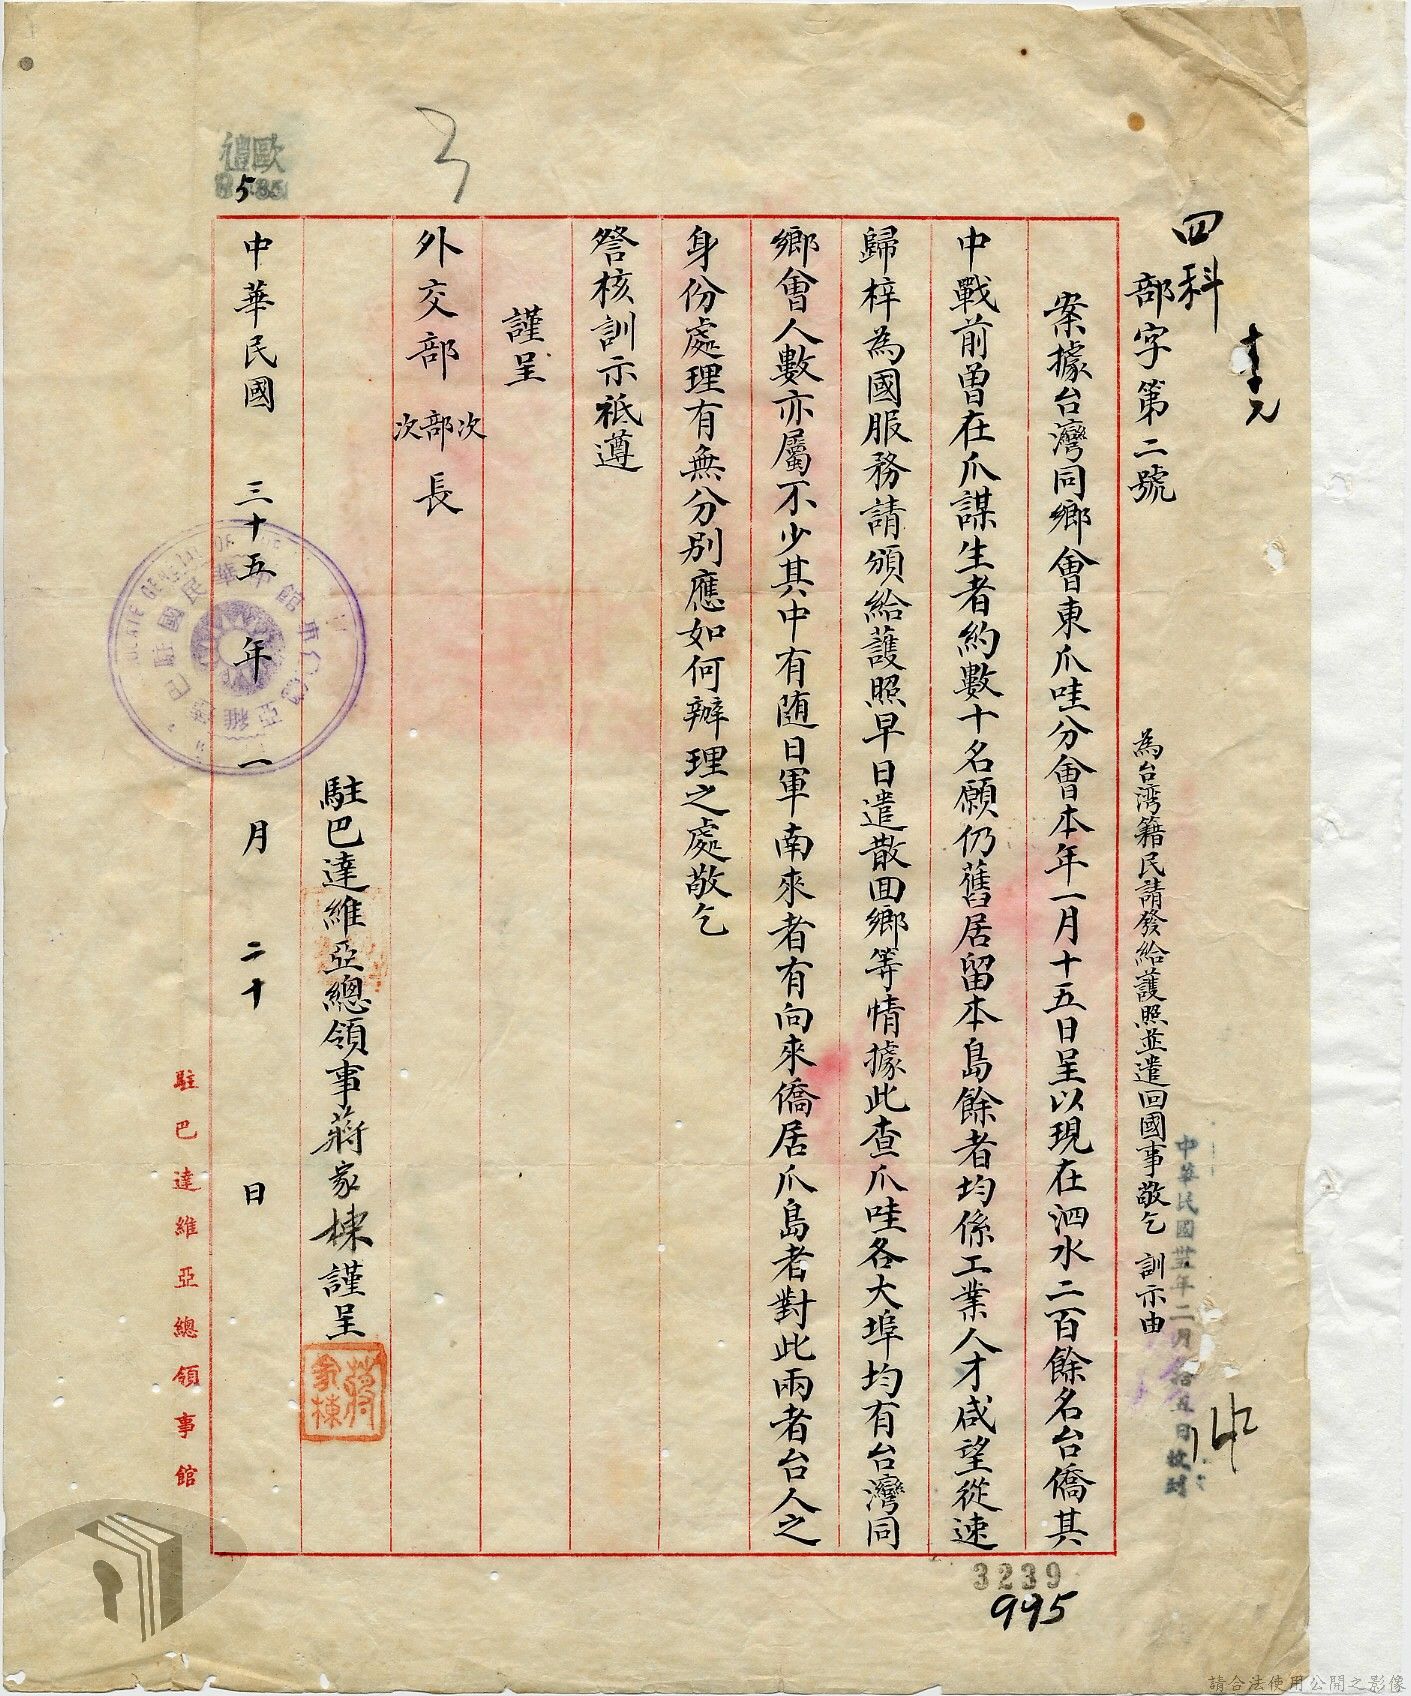 四科
部字第二號
為台湾籍民請發給護照並遣回國事敬乞 訓示由
中華民國卅五年二月拾五日收到
案據台灣同鄉會東爪哇分會本年一月十五日呈以現在泗水二百餘名台僑其
中戰前曾在爪謀生者約數十名願仍舊居留本島餘者均係工業人才咸望從速
歸梓為國服務請頒給護照早日遣散回鄉等情據此查爪哇各大埠均有台灣同
鄉會人數亦屬不少其中有随日軍南來者有向來僑居爪島者對此兩者台人之
身份處理有無分別應如何辦理之處敬乞
詧核訓示祗遵
謹呈
外交部 次部次 長
駐巴達維亞總領事蔣家棟謹呈
蔣家棟
中華民國 三十五 年 一 月 二十 日
駐巴達維亞總領事館
歐禮
5
3239
995
請合法使用公開之影像